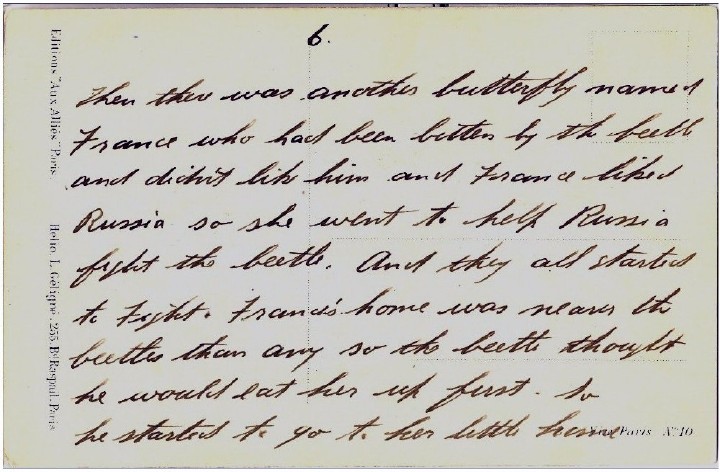 6.
Then there was another butterfly named
France who had been bitten by the beetle
and didn't like him and France liked
Russia so she went to help Russia
fight the beetle. And they all started
to fight. France's home was nearer the
beetles than any so the beetle thought
he would eat her up first. So
he started to go to her little home
Editions "Aux Alliés" Paris.
Hélio. L. Géligné. 255, Bd Raspail. Paris
Visé Paris No 10